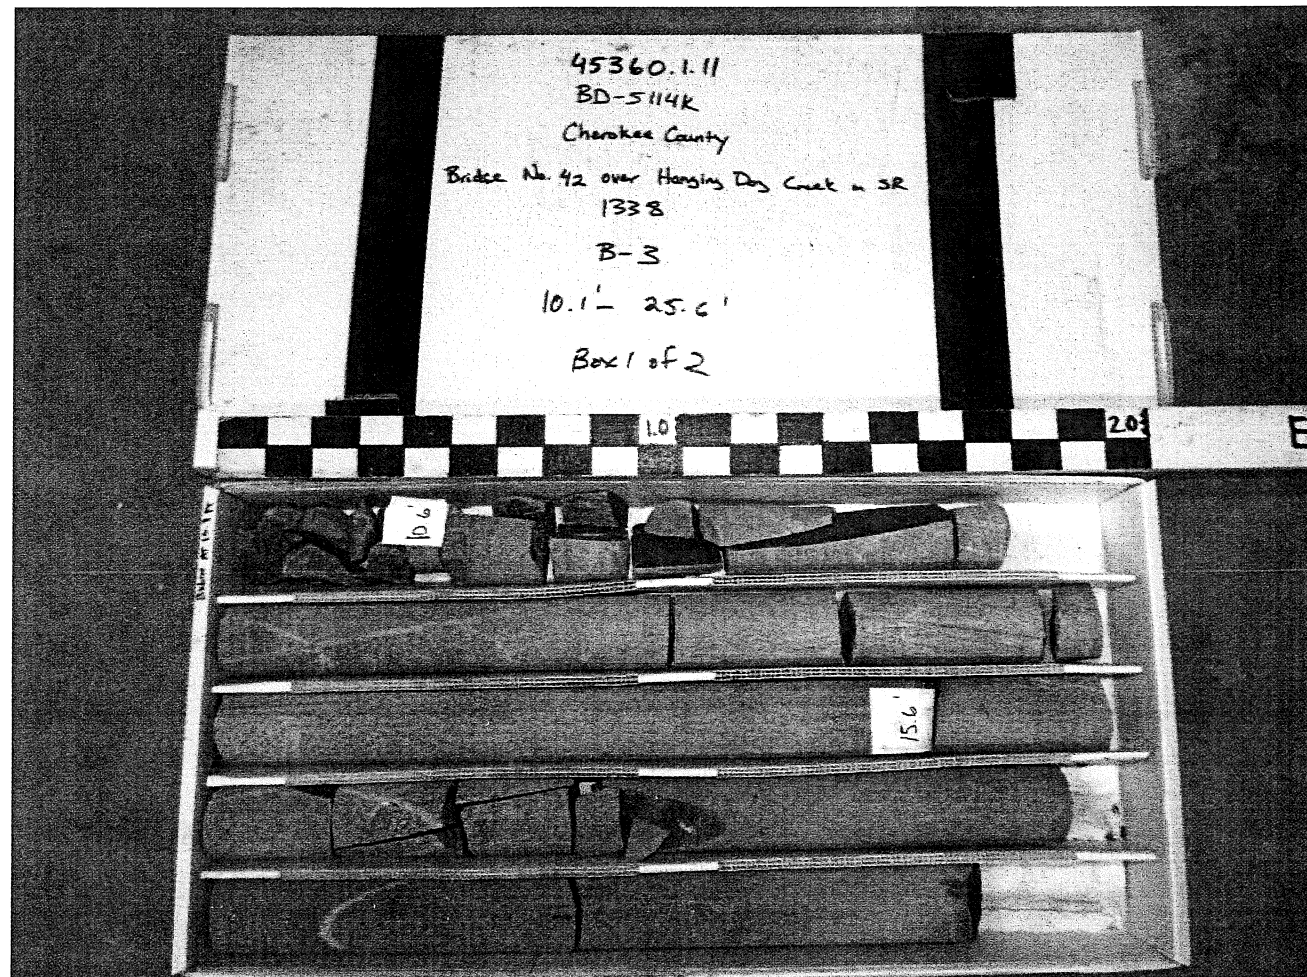 45360.1.11
BD-5114K
Cherokee County
Bridge No. 42 over Hanging Dog Creek on SR
1338
B-3
10.1' - 25.6'
Box 1 of 2
1.0
2.0
E
10.6'
15.6'